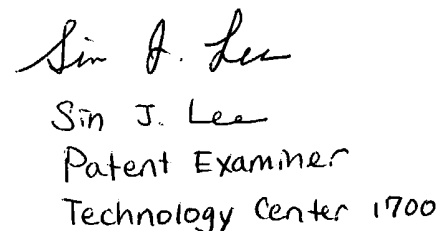 Sin J. Lee
Sin J. Lee
Patent Examiner
Technology Center 1700